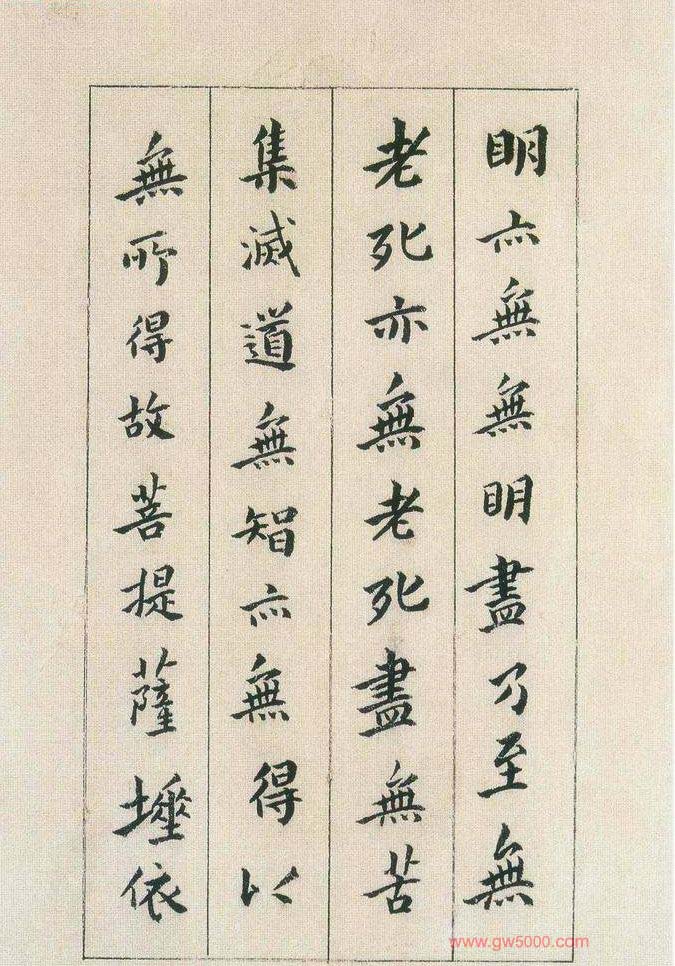 明亦無無明盡乃至無
老死亦無老死盡無苦
集滅道無智亦無得以
無所得故菩提薩埵依
www.gw5000.com